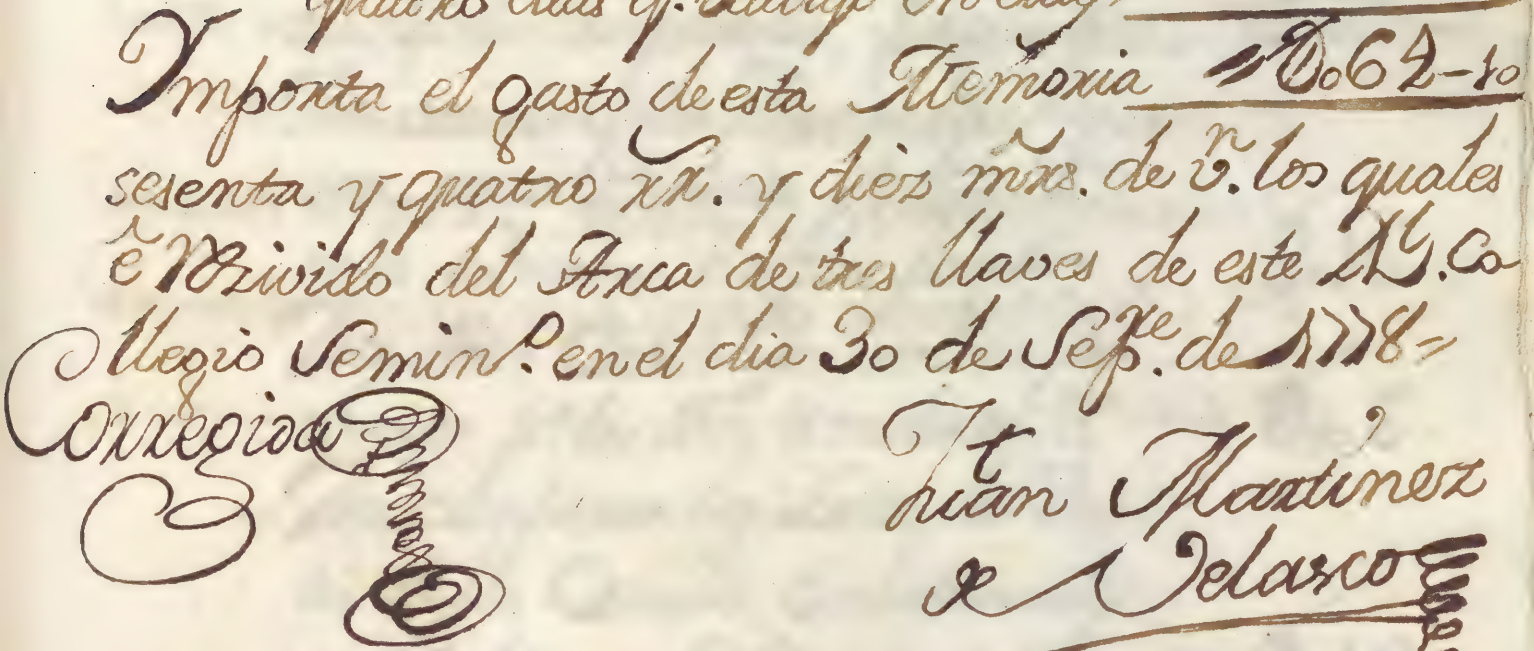 quatro dias q.
Importa el gasto de esta Memoria =0064-10
sesenta y quatro rr. y diez mrs. de vn. los quales
e Rezivido del Arca de tres llaves de este Rl. Co
llegio Semino. en el dia 30 de Sepre. de 1778=
Corregida
Juan Martinez
de Velasco